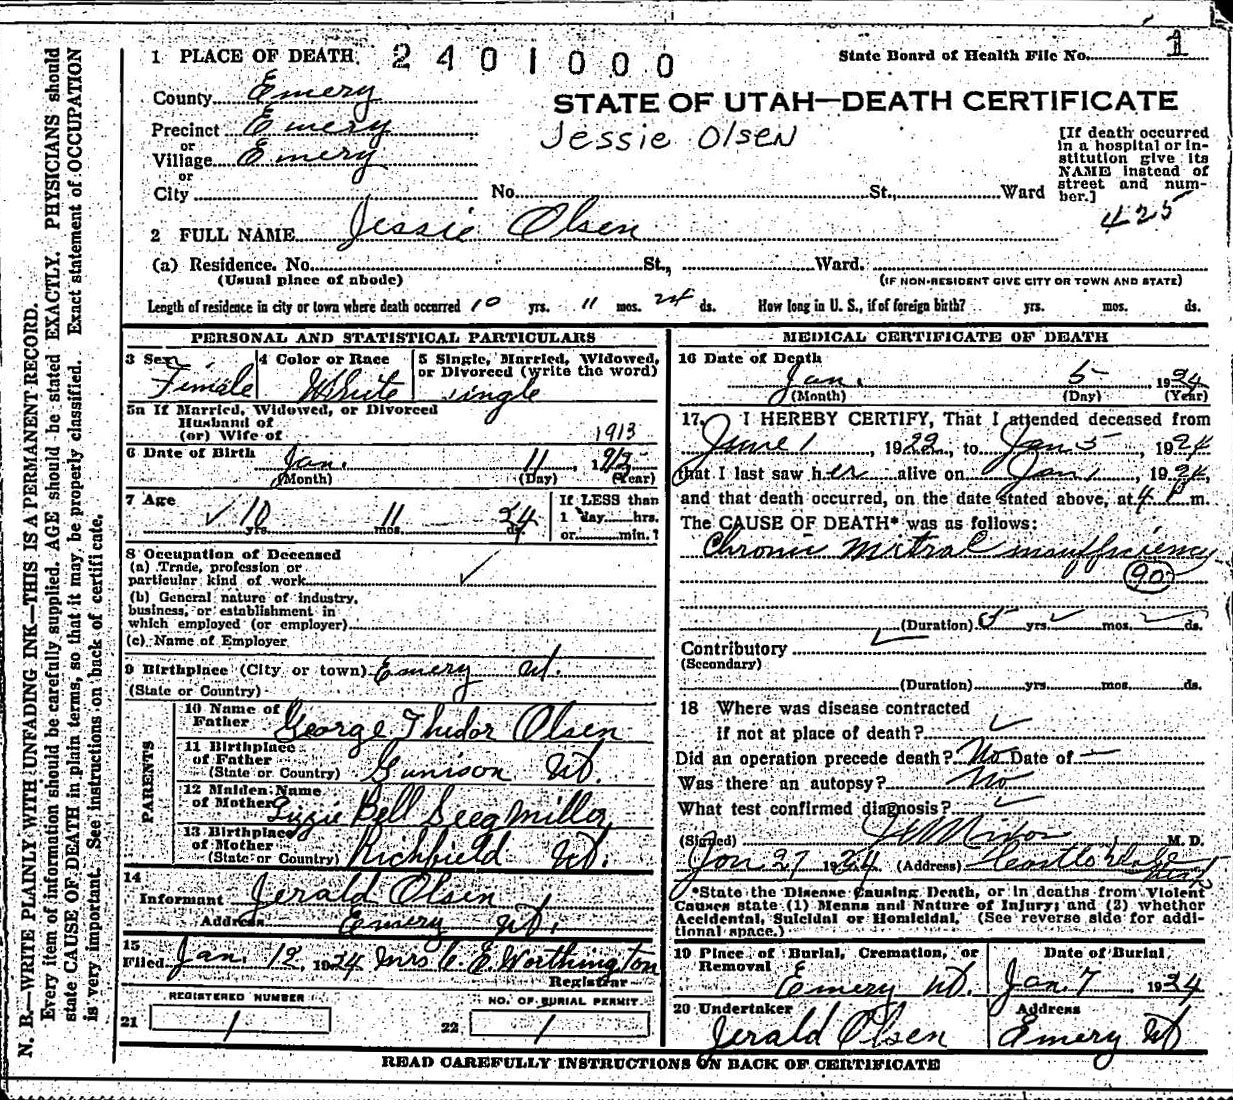 1 PLACE OF DEATH. 2 4 0 1 0 0 0
State Board of Health File No. 1
County Emery
STATE OF UTAH—DEATH CERTIFICATE
Precinct Emery
Jessie Olsen
or
Village Emery
or
City No. St., Ward
[If death occurred
in a hospital or in-
stitution give its
NAME instead of
street and num-
ber.]
425
2 FULL NAME Jessie Olsen
(a) Residence. No. St., Ward.
(Usual place of abode) (IF NON-RESIDENT GIVE CITY OR TOWN AND STATE)
Length of residence in city or town where death occurred 10 yrs. 11 mos. 24 ds. How long in U. S., if of foreign birth? yrs. mos. ds.
PERSONAL AND STATISTICAL PARTICULARS
3 Sex Female
4 Color or Race White
5 Single, Married, Widowed,
or Divorced (write the word)
single
5a If Married, Widowed, or Divorced
Husband of
(or) Wife of
1913
6 Date of Birth Jan. 11, 1913
(Month) (Day) (Year)
7 Age 10 yrs. 11 mos. 24 ds.
If LESS than
1 day hrs.
or min.?
8 Occupation of Deceased
(a) Trade, profession or
particular kind of work
(b) General nature of industry,
business, or establishment in
which employed (or employer)
(c) Name of Employer
9 Birthplace (City or town) Emery Ut.
(State or Country)
PARENTS
10 Name of
Father George Thidor Olsen
11 Birthplace
of Father
(State or Country) Gunison Ut.
12 Maiden Name
of Mother Lizzie Bell Seegmiller
13 Birthplace
of Mother
(State or Country) Richfield Ut.
14
Informant Jerald Olsen
Address Emery Ut.
15
Filed Jan. 12, 1924 Mrs C. E. Worthington
Registrar
REGISTERED NUMBER
21 1
NO. OF BURIAL PERMIT
22 1
MEDICAL CERTIFICATE OF DEATH
16 Date of Death
Jan. 5 1924
(Month) (Day) (Year)
17. I HEREBY CERTIFY, That I attended deceased from
June 1, 1922, to Jan 5, 1924,
that I last saw her alive on Jan 1, 1924,
and that death occurred, on the date stated above, at 4 P m.
The CAUSE OF DEATH* was as follows:
Chronic mitral insufficiency
90
(Duration) 5 yrs. mos. ds.
Contributory
(Secondary)
(Duration) yrs. mos. ds.
18 Where was disease contracted
if not at place of death?
Did an operation precede death? No Date of —
Was there an autopsy? No
What test confirmed diagnosis?
(Signed) M. D.
Jan 27 1924 (Address) Castle Dale
*State the Disease Causing Death, or in deaths from Violent
Causes state (1) Means and Nature of Injury; and (2) whether
Accidental, Suicidal or Homicidal. (See reverse side for addi-
tional space.)
19 Place of Burial, Cremation, or
Removal
Emery Ut.
Date of Burial
Jan. 7 1924
20 Undertaker
Jerald Olsen
Address
Emery Ut
READ CAREFULLY INSTRUCTIONS ON BACK OF CERTIFICATE
N. B.—WRITE PLAINLY WITH UNFADING INK—THIS IS A PERMANENT RECORD.
Every item of information should be carefully supplied. AGE should be stated EXACTLY. PHYSICIANS should
state CAUSE OF DEATH in plain terms, so that it may be properly classified. Exact statement of OCCUPATION
is very important. See instructions on back of certificate.